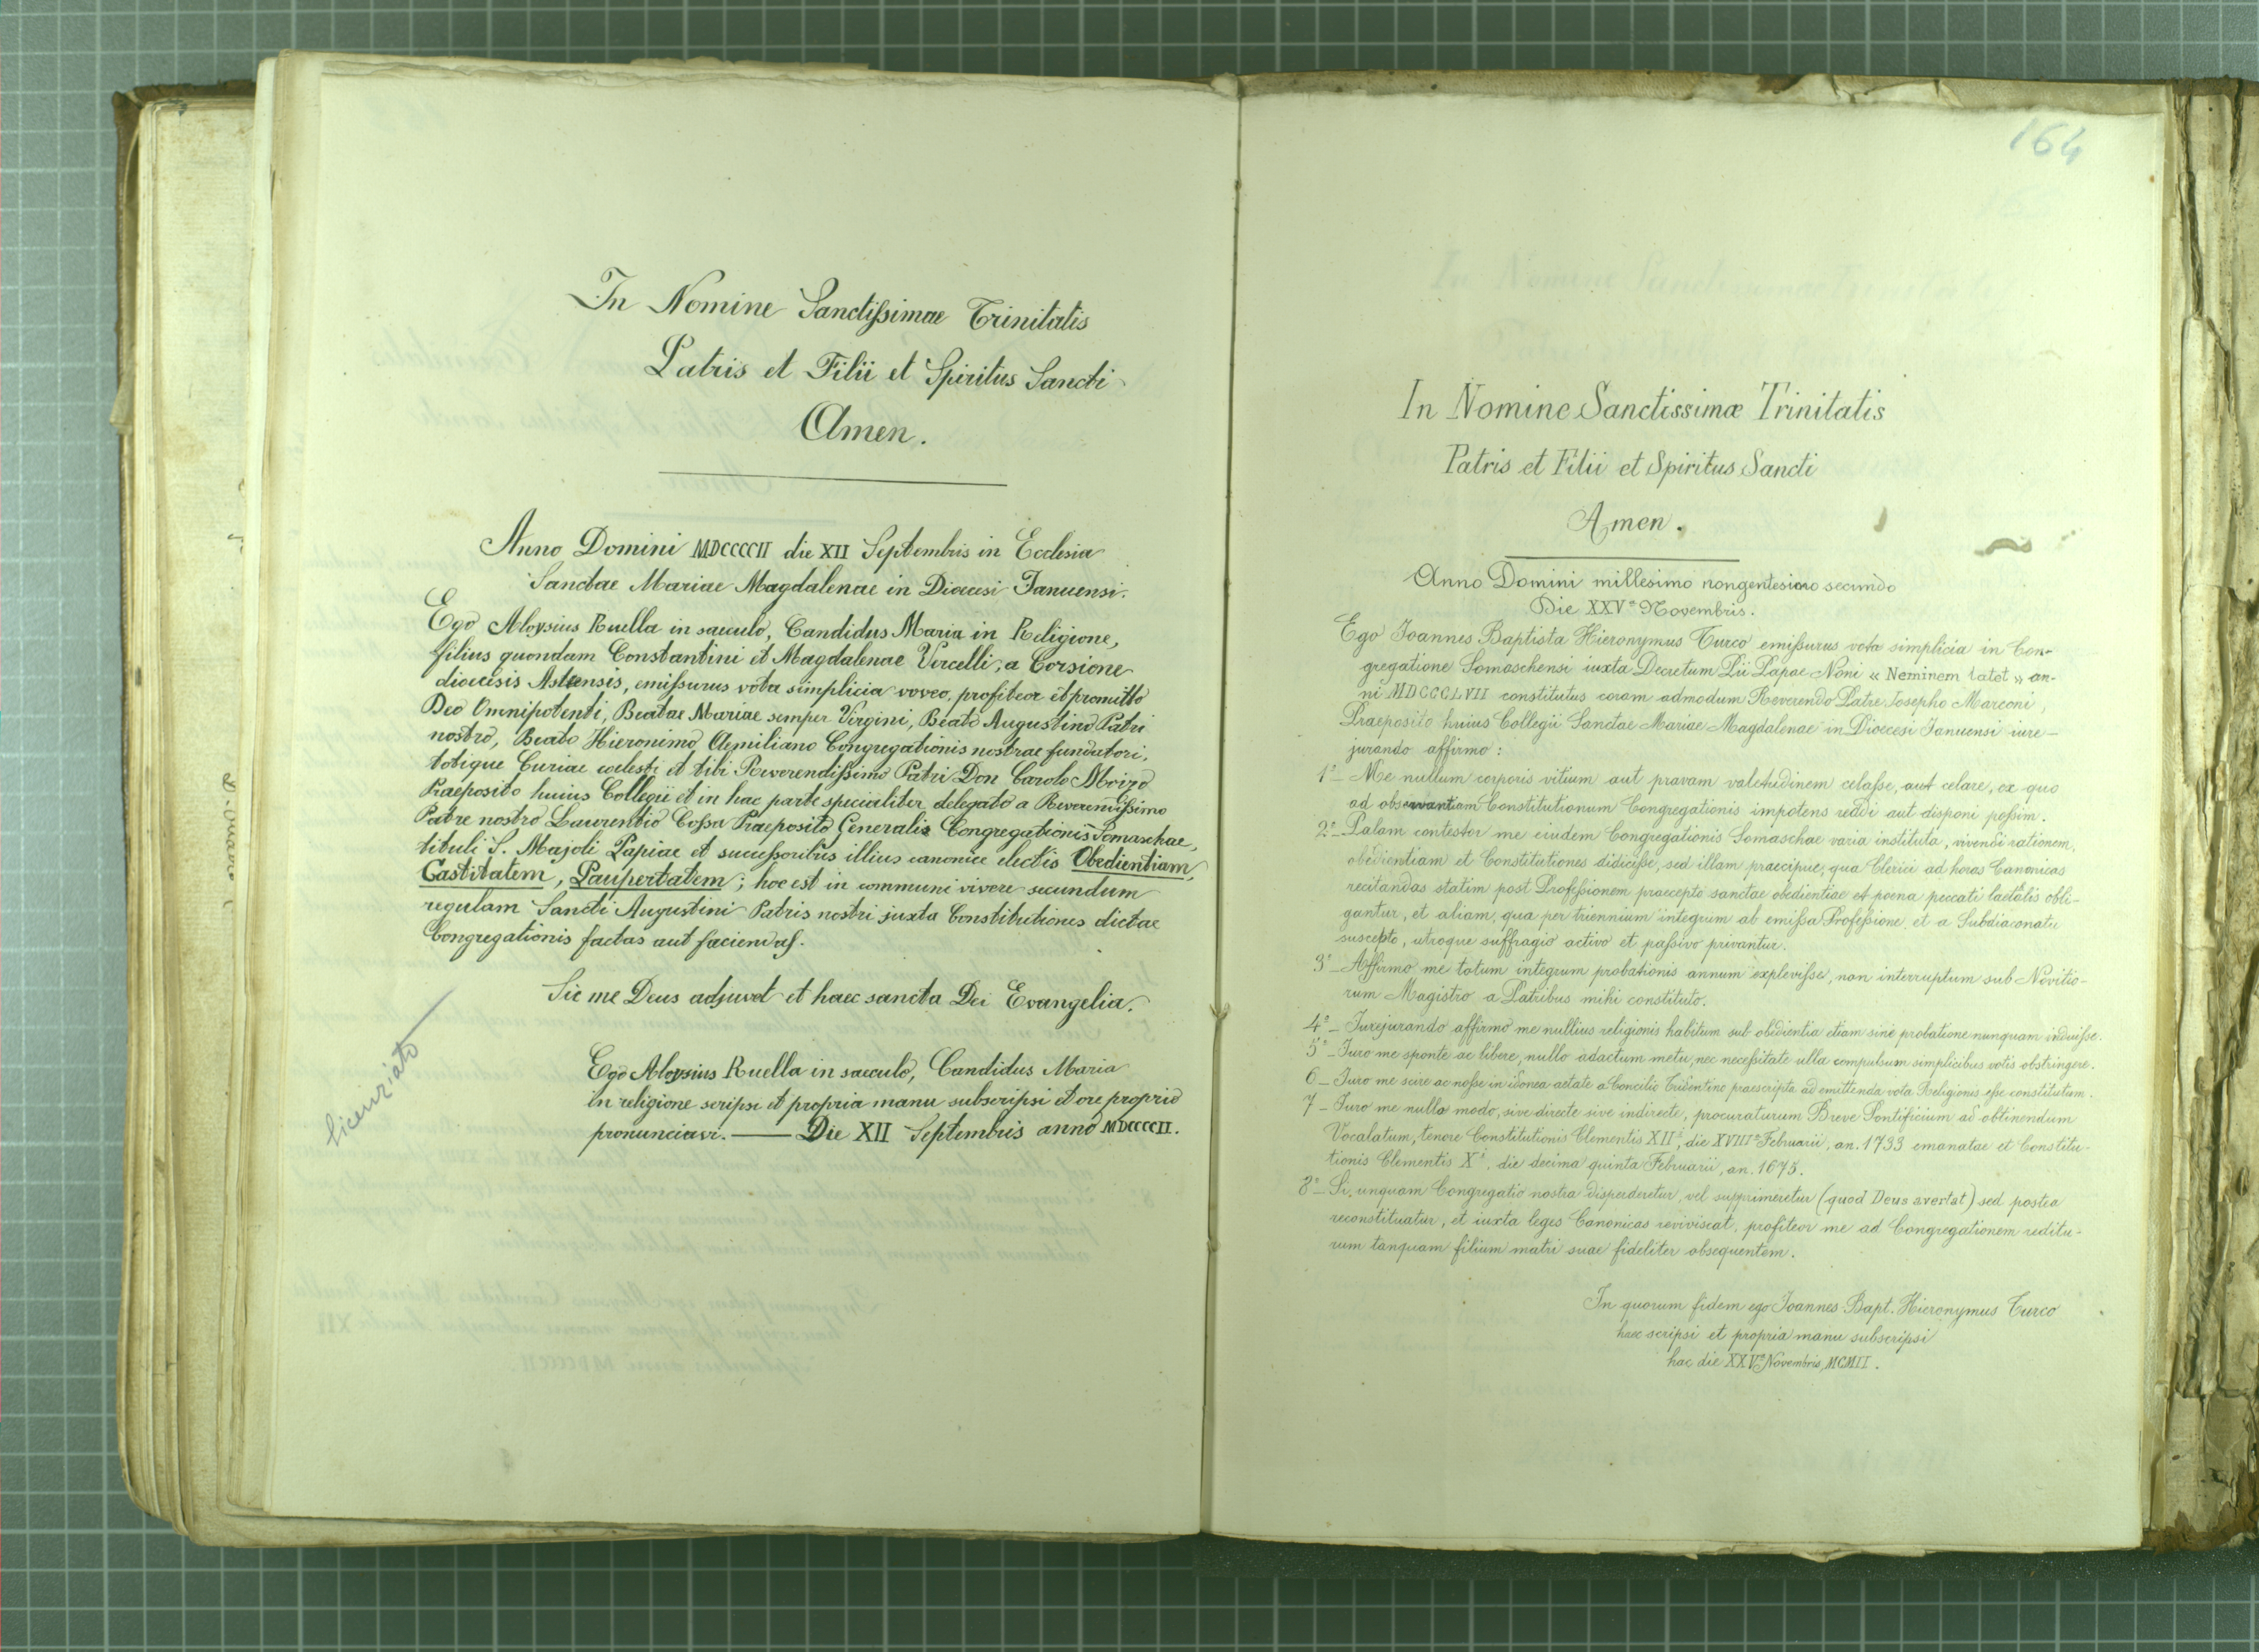 In Nomine Sanctissimae Trinitatis
Patris et Filii et Spiritus Sancti
Amen.
Anno Domini MDCCCCII die XII Septembris in Ecclesia
Sanctae Mariae Magdalenae in Dioecesi Januensi.
Ego Aloysius Ruella in saeculo, Candidus Maria in Religione,
filius quondam Constantini et Magdalenae Vercelli, a Corsione
dioecisis Astensis, emissurus vota simplicia voveo, profiteor et promitto
Deo Omnipotenti, Beatae Mariae semper Virgini, Beato Augustino Patri
nostro, Beato Hieronimo Aemiliano Congregationis nostrae fundatori,
totique Curiae coelesti et tibi Reverendissimo Patri Don Carolo Moizo
Praeposito huius Collegii et in hac parte specialiter delegato a Reverendissimo
Patre nostro Laurentio Cossa Praeposito Generalis Congregationis Somaschae,
tituli S. Majoli Papiae et successoribus illius canonice electis Obedientiam,
Castitatem, Paupertatem; hoc est in communi vivere secundum
regulam Sancti Augustini Patris nostri juxta Constitutiones dictae
Congregationis factas aut faciendas.
Sic me Deus adjuvet et haec sancta Dei Evangelia.
Ego Aloysius Ruella in saeculo, Candidus Maria
in religione scripsi et propria manu subscripsi et ore proprio
pronunciavi. — Die XII Septembris anno MDCCCCII.
licenziato
164
In Nomine Sanctissimæ Trinitatis
Patris et Filii et Spiritus Sancti
Amen.
Anno Domini millesimo nongentesimo secundo
Die XXVª Novembris.
Ego Joannes Baptista Hieronymus Turco emissurus vota simplicia in Con-
gregatione Somaschensi iuxta Decretum Pii Papae Noni « Neminem latet » an-
ni MDCCCLVII constitutus coram admodum Reverendo Patre Josepho Marconi,
Praeposito huius Collegii Sanctae Mariae Magdalenae in Dioecesi Januensi iure-
jurando affirmo:
1º_ Me nullum corporis vitium aut pravam valetudinem celasse, aut celare, ex quo
ad observantiam Constitutionum Congregationis impotens reddi aut disponi possim.
2º_ Palam contestor me eiusdem Congregationis Somaschae varia instituta, vivendi rationem,
obedientiam et Constitutiones didicisse, sed illam praecipue, qua Clerici ad horas Canonicas
recitandas statim post Professionem praecepto sanctae obedientiae et poena peccati laetalis obli-
gantur, et aliam, qua per triennium integrum ab emissa Professione et a Subdiaconatu
suscepto, utroque suffragio activo et passivo privantur.
3º_ Affirmo me totum integrum probationis annum explevisse, non interruptum sub Novitio-
rum Magistro a Patribus mihi constituto.
4º_ Jurejurando affirmo me nullius religionis habitum sub obedientia etiam sine probatione nunquam induisse.
5º_ Juro me sponte ac libere, nullo adactum metu, nec necessitate ulla compulsum simplicibus votis obstringere.
6_ Juro me scire ac nosse in idonea aetate a Concilio Tridentino praescripta ad emittenda vota Religionis esse constitutum.
7_ Juro me nullo modo, sive directe sive indirecte, procuraturum Breve Pontificium ad obtinendum
Vocalatum, tenore Constitutionis Clementis XIIi, die XVIIIª Februarii, an. 1733 emanatae et Constitu-
tionis Clementis Xi, die decima quinta Februarii, an. 1675.
8º_ Si unquam Congregatio nostra disperderetur, vel supprimeretur (quod Deus avertat) sed postea
reconstituatur, et iuxta leges Canonicas reviviscat, profiteor me ad Congregationem reditu-
rum tanquam filium matri suae fideliter obsequentem.
In quorum fidem ego Joannes Bapt. Hieronymus Turco
haec scripsi et propria manu subscripsi
hac die XXVª Novembris MCMII.